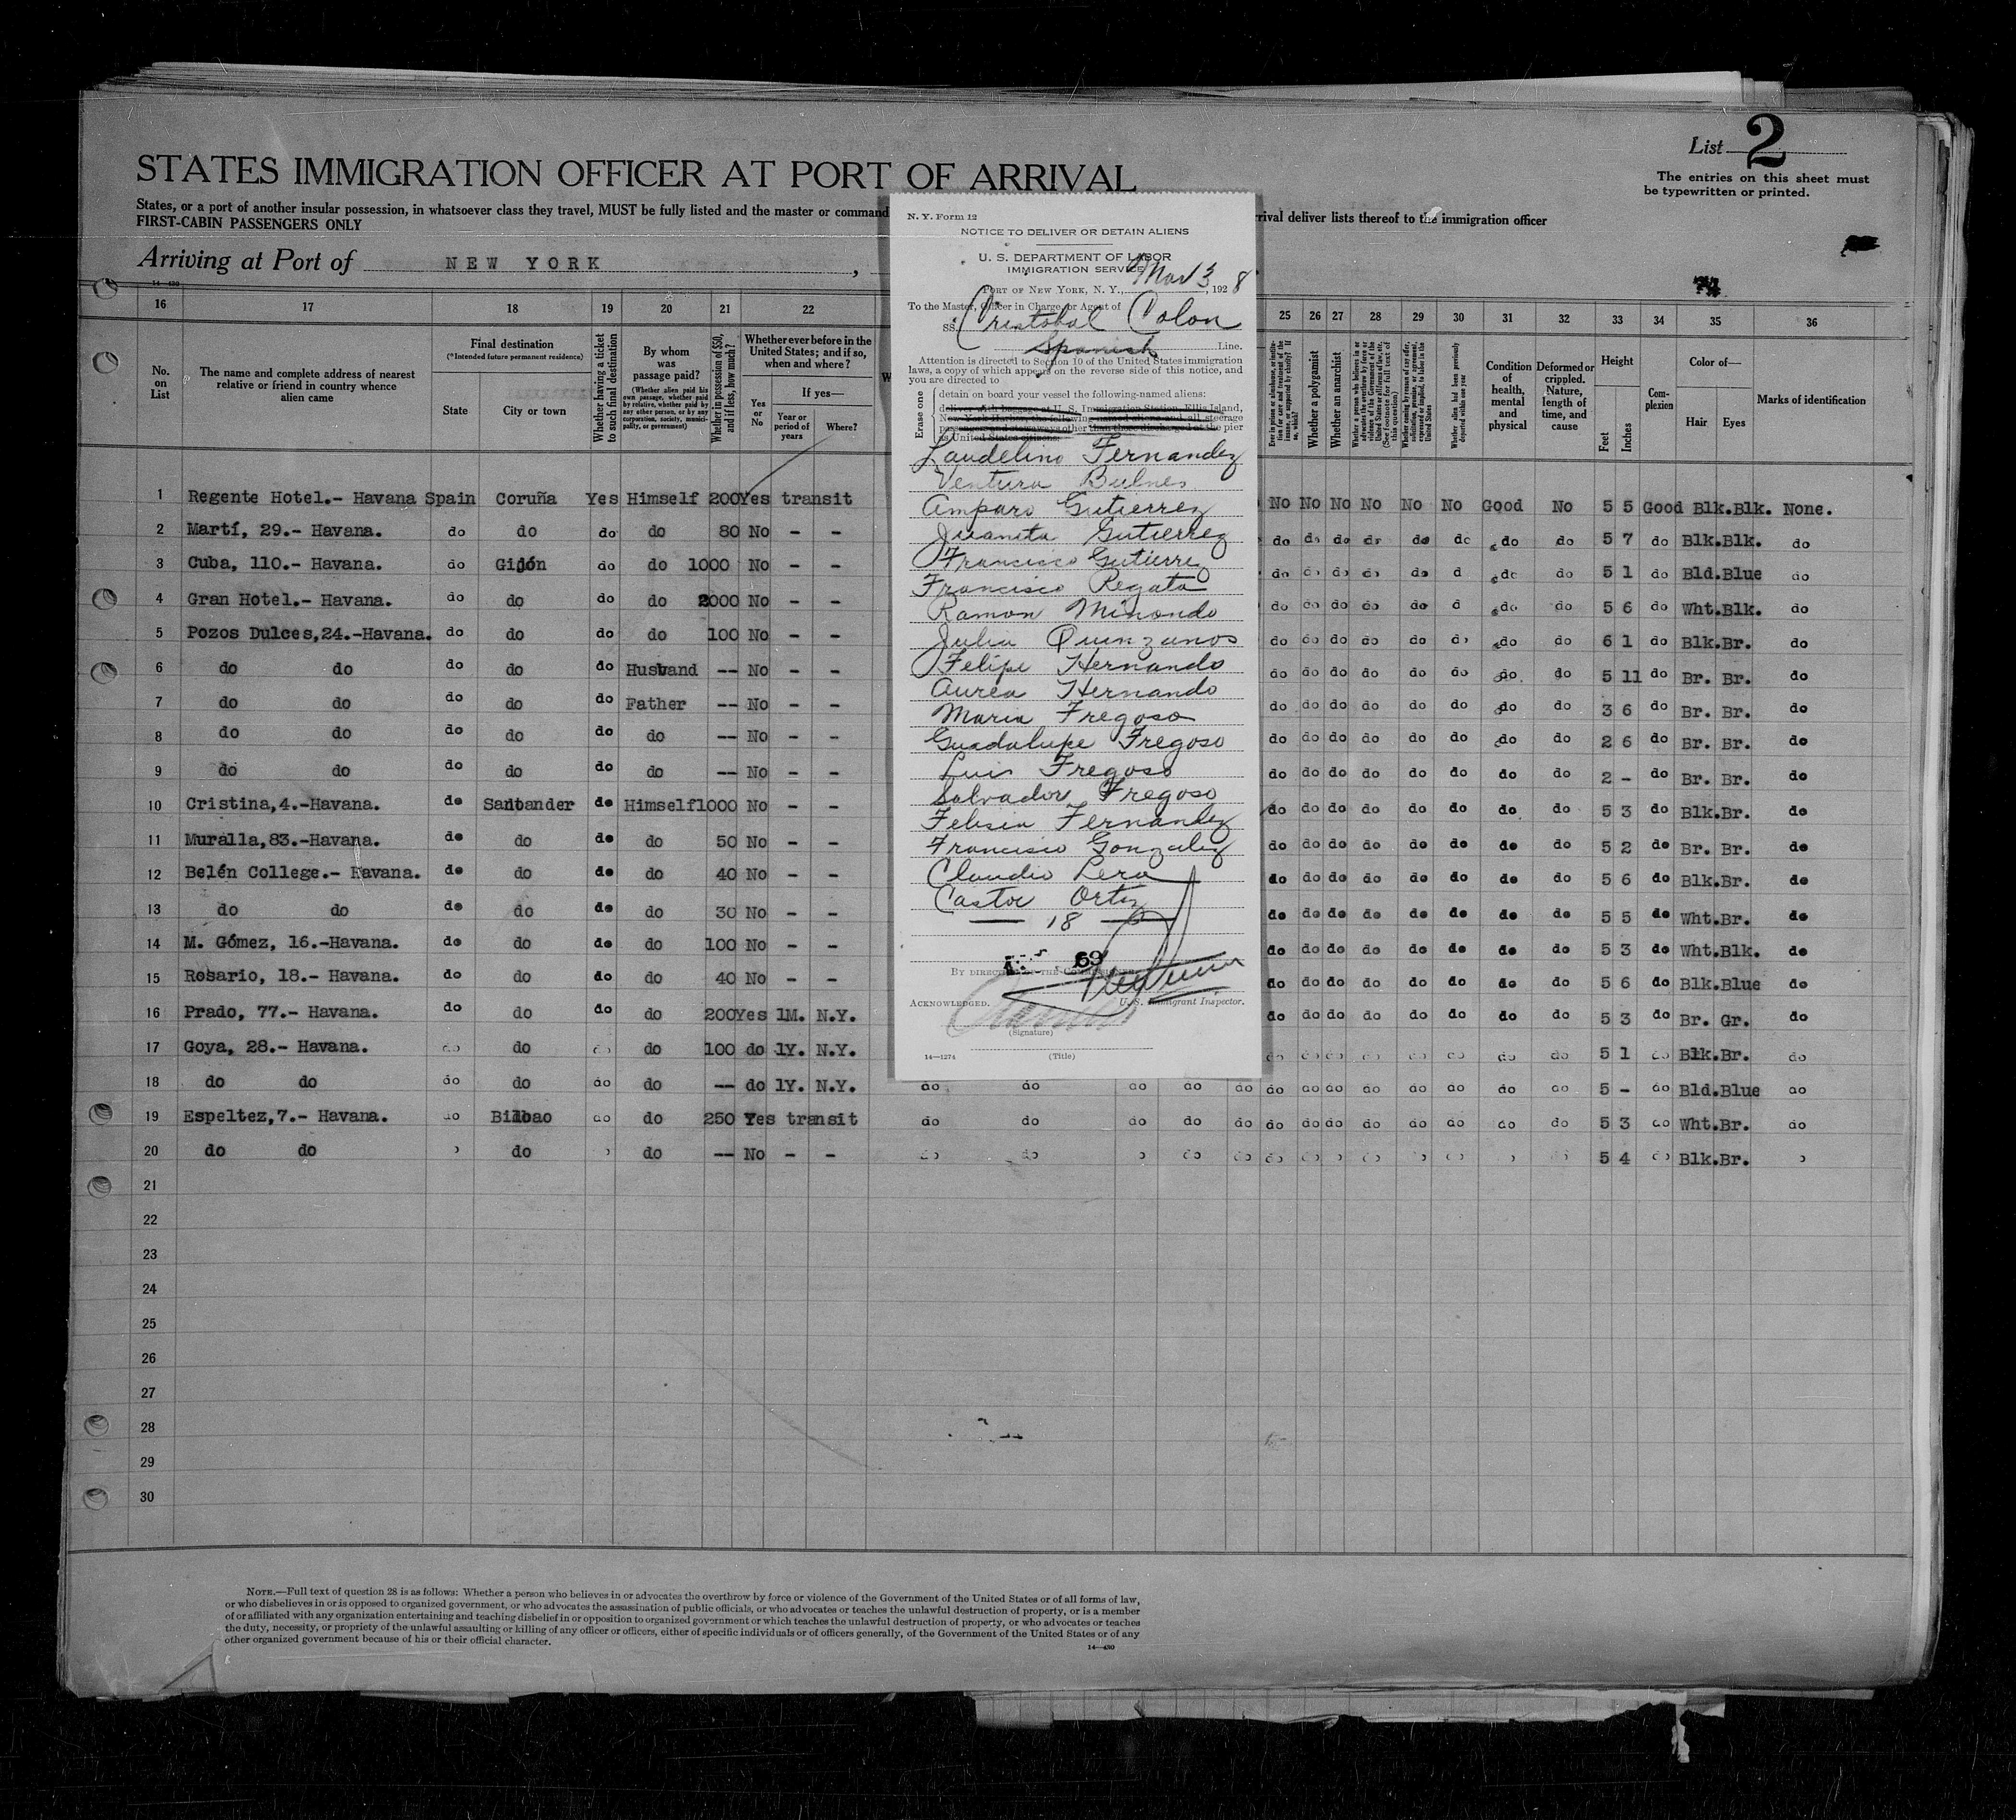 List 2
The entries on this sheet must
be typewritten or printed.
STATES IMMIGRATION OFFICER AT PORT OF ARRIVAL
States, or a port of another insular possession, in whatsoever class they travel, MUST be fully listed and the master or command
rrival deliver lists thereof to the immigration officer
FIRST-CABIN PASSENGERS ONLY
Arriving at Port of NEW YORK,
14—430
16 17 18 19 20 21 22
25 26 27 28 29 30 31 32 33 34 35 36
No. on List
The name and complete address of nearest relative or friend in country whence alien came
Final destination
(*Intended future permanent residence)
State
City or town
Whether having a ticket to such final destination
By whom was passage paid?
(Whether alien paid his own passage, whether paid by relative, whether paid by any other person, or by any corporation, society, municipality, or government)
Whether in possession of $50, and if less, how much?
Whether ever before in the United States; and if so, when and where?
Yes or No
If yes—
Year or period of years
Where?
Whether a polygamist
Whether an anarchist
Whether alien had been previously deported within one year
Condition of health, mental and physical
Deformed or crippled. Nature, length of time, and cause
Height
Feet
Inches
Complexion
Color of—
Hair Eyes
Marks of identification
1 Regente Hotel.- Havana Spain Coruña Yes Himself 200 Yes transit
2 Martí, 29.- Havana. do do do do 80 No - -
3 Cuba, 110.- Havana. do Gijón do do 1000 No - -
4 Gran Hotel.- Havana. do do do do 2000 No - -
5 Pozos Dulces,24.-Havana. do do do do 100 No - -
6 do do do do do Husband -- No - -
7 do do do do do Father -- No - -
8 do do do do do do -- No - -
9 do do do do do do -- No - -
10 Cristina,4.-Havana. do Santander do Himself 1000 No - -
11 Muralla,83.-Havana. do do do do 50 No - -
12 Belén College.- Havana. do do do do 40 No - -
13 do do do do do do 30 No - -
14 M. Gómez, 16.-Havana. do do do do 100 No - -
15 Rosario, 18.- Havana. do do do do 40 No - -
16 Prado, 77.- Havana. do do do do 200 Yes 1M. N.Y.
17 Goya, 28.- Havana. do do do do 100 do 1Y. N.Y.
18 do do do do do do -- do 1Y. N.Y. do do do do do
19 Espeltez,7.- Havana. do Bilbao do do 250 Yes transit do do do do do
20 do do do do -- No - - do do do do do
21
22
23
24
25
26
27
28
29
30
No No No No No No Good No 5 5 Good Blk.Blk. None.
do do do do do do do do 5 7 do Blk.Blk. do
do do do do do d do do 5 1 do Bld.Blue do
do do do do do d do do 5 6 do Wht.Blk. do
do do do do do do do do 6 1 do Blk.Br. do
do do do do do do do do 5 11 do Br. Br. do
do do do do do do do do 3 6 do Br. Br. do
do do do do do do do do 2 6 do Br. Br. do
do do do do do do do do 2 - do Br. Br. do
do do do do do do do do 5 3 do Blk.Br. do
do do do do do do do do 5 2 do Br. Br. do
do do do do do do do do 5 6 do Blk.Br. do
do do do do do do do do 5 5 do Wht.Br. do
do do do do do do do do 5 3 do Wht.Blk. do
do do do do do do do do 5 6 do Blk.Blue do
do do do do do do do do 5 3 do Br. Gr. do
do do do do do do do do 5 1 do Blk.Br. do
do do do do do do do do 5 - do Bld.Blue do
do do do do do do do do 5 3 do Wht.Br. do
5 4 do Blk.Br.
N. Y. Form 12
NOTICE TO DELIVER OR DETAIN ALIENS
U. S. DEPARTMENT OF LABOR
IMMIGRATION SERVICE
PORT OF NEW YORK, N. Y., Mar 3, 1928
To the Master, Officer in Charge or Agent of
SS. Cristobal Colon
Spanish Line.
Attention is directed to Section 10 of the United States immigration
laws, a copy of which appears on the reverse side of this notice, and
you are directed to
Erase one
detain on board your vessel the following-named aliens:
deliver with baggage at U. S. Immigration Station, Ellis Island,
New York Harbor, the following-named aliens and all steerage
passengers and stowaways other than those discharged at the pier
as United States citizens:
Laudelino Fernandez
Ventura Bulnes
Amparo Gutierrez
Juanita Gutierrez
Francisco Gutierrez
Francisco Regata
Ramon Minondo
Julia Quinzanos
Felipe Hernando
Aurea Hernando
Maria Fregoso
Guadalupe Fregoso
Luis Fregoso
Salvador Fregoso
Felisia Fernandez
Francisco Gonzalez
Claudio Lera
Castor Ortiz
— 18 —
69
BY DIRECTION OF THE COMMISSIONER
ACKNOWLEDGED.
U. S. Immigrant Inspector.
(Signature)
14—1274
(Title)
NOTE.—Full text of question 28 is as follows: Whether a person who believes in or advocates the overthrow by force or violence of the Government of the United States or of all forms of law,
or who disbelieves in or is opposed to organized government, or who advocates the assassination of public officials, or who advocates or teaches the unlawful destruction of property, or is a member
of or affiliated with any organization entertaining and teaching disbelief in or opposition to organized government or which teaches the unlawful destruction of property, or who advocates or teaches
the duty, necessity, or propriety of the unlawful assaulting or killing of any officer or officers, either of specific individuals or of officers generally, of the Government of the United States or of any
other organized government because of his or their official character.
14—430